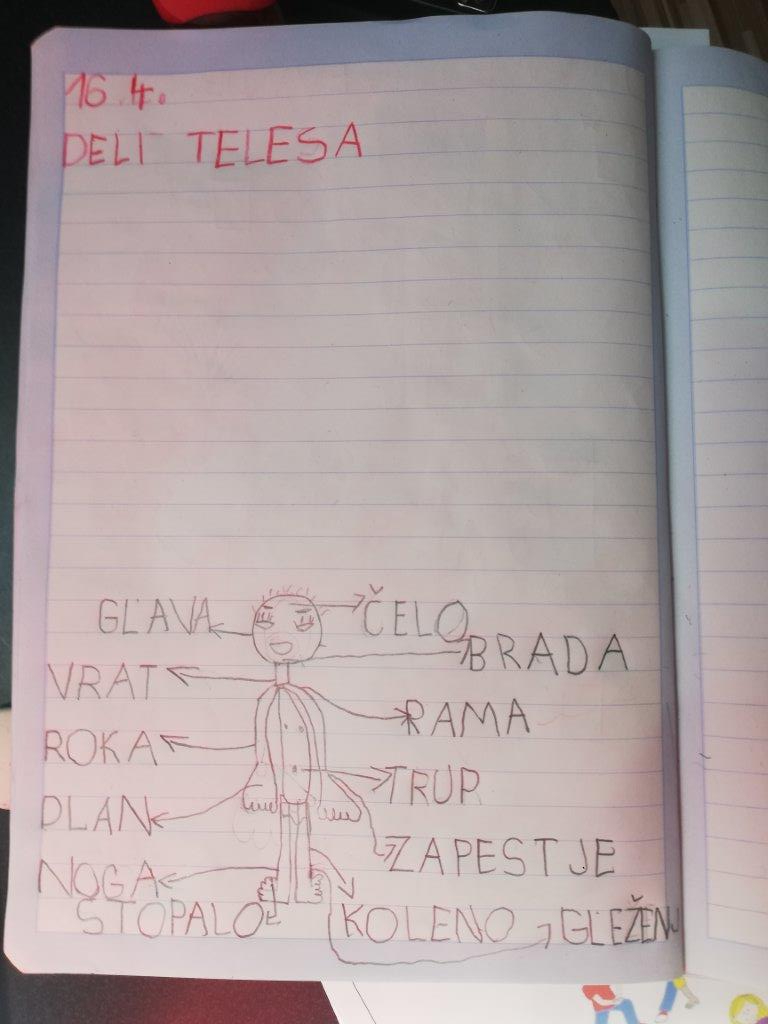 16.4.
DELI TELESA
GLAVA
ČELO
BRADA
VRAT
RAMA
ROKA
TRUP
DLAN
ZAPESTJE
NOGA
STOPALO
KOLENO
GLEŽENJ